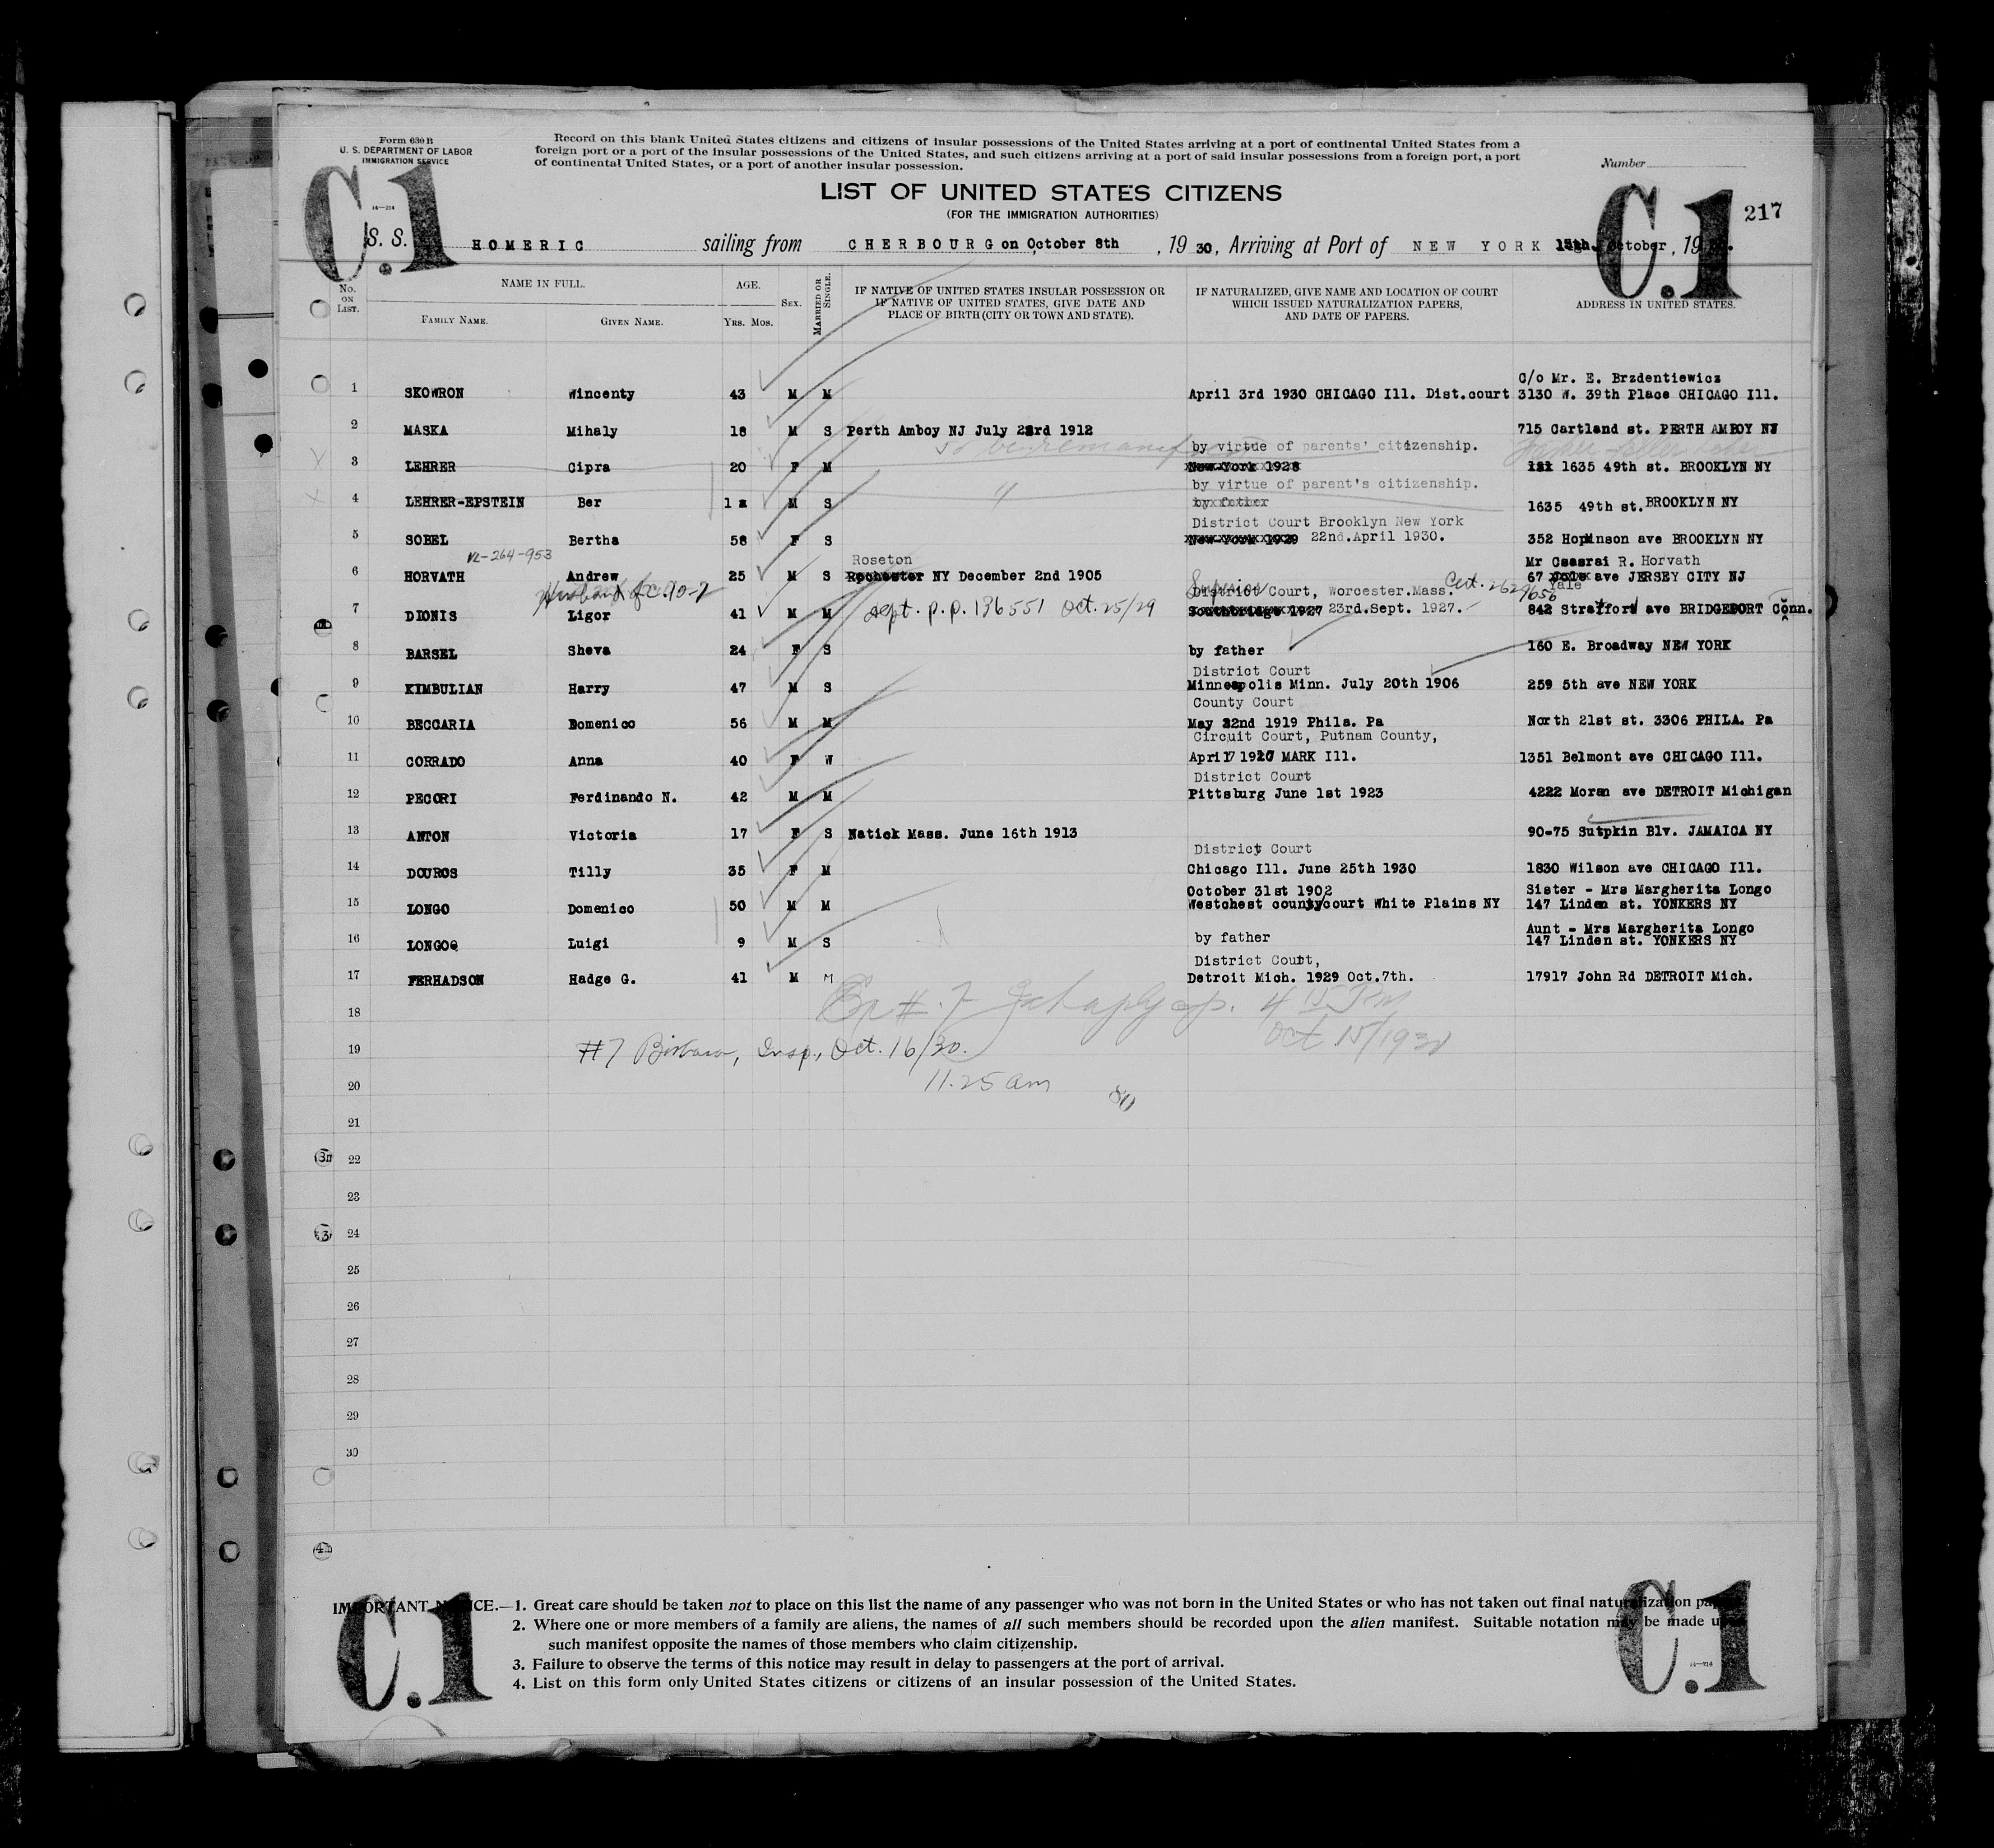 Form 630 B
U. S. DEPARTMENT OF LABOR
IMMIGRATION SERVICE
Record on this blank United States citizens and citizens of insular possessions of the United States arriving at a port of continental United States from a
foreign port or a port of the insular possessions of the United States, and such citizens arriving at a port of said insular possessions from a foreign port, a port
of continental United States, or a port of another insular possession.
Number
C.1
C.1
217
LIST OF UNITED STATES CITIZENS
(FOR THE IMMIGRATION AUTHORITIES)
S. S. HOMERIC sailing from CHERBOURG on October 8th, 1930, Arriving at Port of NEW YORK 15th. October, 19
No. ON LIST.
NAME IN FULL.
FAMILY NAME.
GIVEN NAME.
AGE.
YRS. MOS.
SEX.
MARRIED OR SINGLE.
IF NATIVE OF UNITED STATES INSULAR POSSESSION OR
IF NATIVE OF UNITED STATES, GIVE DATE AND
PLACE OF BIRTH (CITY OR TOWN AND STATE).
IF NATURALIZED, GIVE NAME AND LOCATION OF COURT
WHICH ISSUED NATURALIZATION PAPERS,
AND DATE OF PAPERS.
ADDRESS IN UNITED STATES.
C/o Mr. E. Brzdentiewicz
1 SKOWRON Wincenty 43 M M April 3rd 1930 CHICAGO Ill. Dist.court 3130 W. 39th Place CHICAGO Ill.
2 MASKA Mihaly 18 M S Perth Amboy NJ July 23rd 1912 715 Cartland st. PERTH AMBOY NJ
by virtue of parents' citizenship.
3 LEHRER Cipra 20 F M New York 1928 1635 49th st. BROOKLYN NY
by virtue of parent's citizenship.
4 LEHRER-EPSTEIN Ber 1 M S by father 1635 49th st. BROOKLYN NY
District Court Brooklyn New York
5 SOBEL Bertha 58 F S New York 1929 22nd.April 1930. 352 Hopkinson ave BROOKLYN NY
VL-264-953
Roseton
Mr Csasrai R. Horvath
6 HORVATH Andrew 25 M S Rochester NY December 2nd 1905 67 Cole ave JERSEY CITY NJ
Yale
Husband of C.70-7
Superior
District Court, Worcester.Mass. Cert. 2629656
7 DIONIS Ligor 41 M M Sept. p.p. 136551 Oct. 25/29 Southbridge 1927 23rd.Sept. 1927. 842 Strafford ave BRIDGEPORT Conn.
8 BARSEL Sheva 24 F S by father 160 E. Broadway NEW YORK
District Court
9 KIMBULIAN Harry 47 M S Minneapolis Minn. July 20th 1906 259 5th ave NEW YORK
County Court
10 BECCARIA Domenico 56 M M May 22nd 1919 Phila. Pa North 21st st. 3306 PHILA. Pa
Circuit Court, Putnam County,
11 CORRADO Anna 40 F W April 7 1927 MARK Ill. 1351 Belmont ave CHICAGO Ill.
District Court
12 PECORI Ferdinando N. 42 M M Pittsburg June 1st 1923 4222 Moran ave DETROIT Michigan
13 ANTON Victoria 17 F S Natick Mass. June 16th 1913 90-75 Sutpkin Blv. JAMAICA NY
District Court
14 DOUROS Tilly 35 F M Chicago Ill. June 25th 1930 1830 Wilson ave CHICAGO Ill.
October 31st 1902 Sister - Mrs Margherita Longo
15 LONGO Domenico 50 M M Westchest county court White Plains NY 147 Linden st. YONKERS NY
Aunt - Mrs Margherita Longo
16 LONGO Luigi 9 M S by father 147 Linden st. YONKERS NY
District Court,
17 FERHADSON Hadge G. 41 M M Detroit Mich. 1929 Oct.7th. 17917 John Rd DETROIT Mich.
18
Oct 15/1930
19 #7 Insp., Oct. 16/30.
20 11.25 am
21
22
23
24
25
26
27
28
29
30
IMPORTANT NOTICE.—1. Great care should be taken not to place on this list the name of any passenger who was not born in the United States or who has not taken out final naturalization papers.
2. Where one or more members of a family are aliens, the names of all such members should be recorded upon the alien manifest. Suitable notation may be made upon
such manifest opposite the names of those members who claim citizenship.
3. Failure to observe the terms of this notice may result in delay to passengers at the port of arrival.
4. List on this form only United States citizens or citizens of an insular possession of the United States.
C.1
C.1